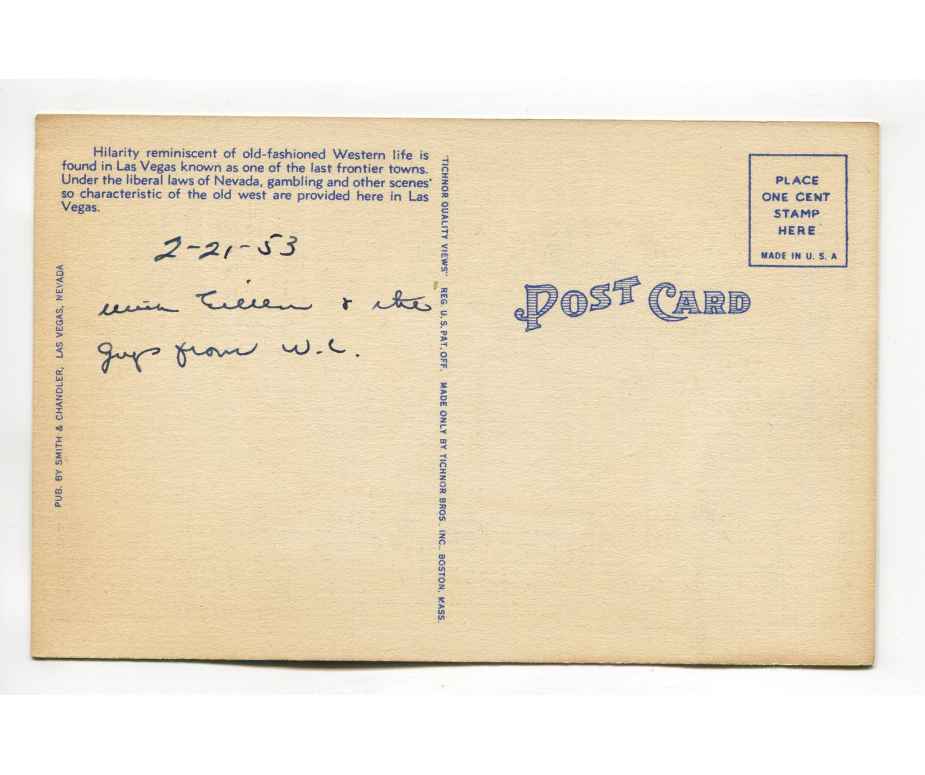 Hilarity reminiscent of old-fashioned Western life is
found in Las Vegas known as one of the last frontier towns.
Under the liberal laws of Nevada, gambling and other scenes
so characteristic of the old west are provided here in Las
Vegas.
2-21-53
& the
guys from W.C.
PUB. BY SMITH & CHANDLER, LAS VEGAS, NEVADA
TICHNOR QUALITY VIEWS" REG. U. S. PAT. OFF. MADE ONLY BY TICHNOR BROS. INC., BOSTON, MASS.
POST CARD
PLACE
ONE CENT
STAMP
HERE
MADE IN U. S. A